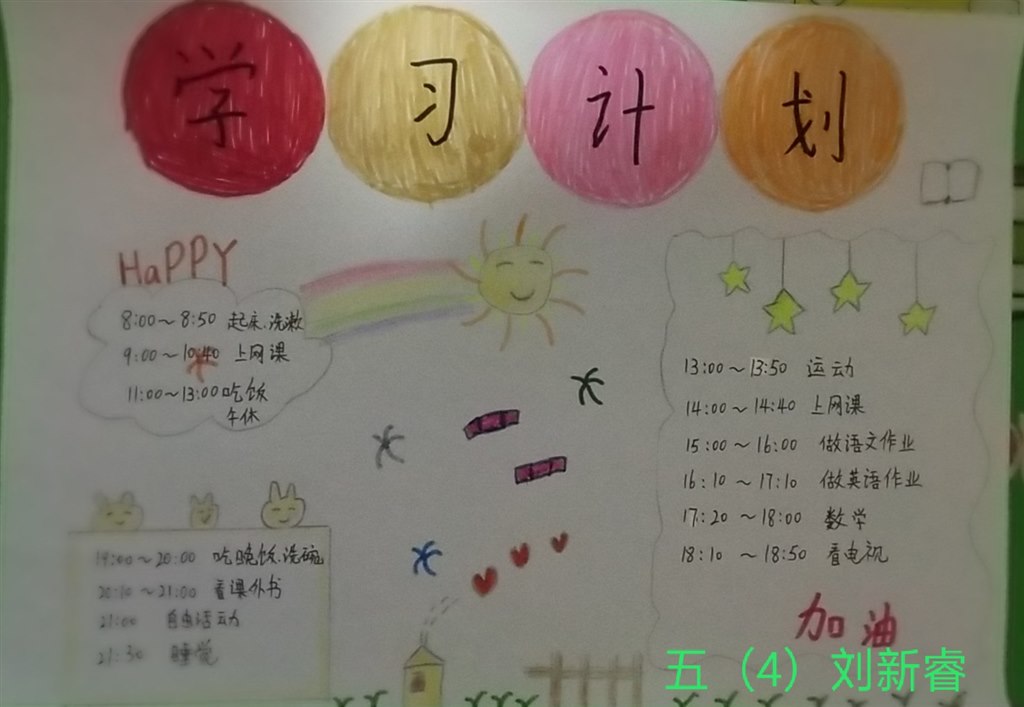 学习计划
HaPPY
8:00～8:50 起床.洗漱
9:00～10:40 上网课
11:00～13:00 吃饭
午休
13:00～13:50 运动
14:00～14:40 上网课
15:00～16:00 做语文作业
16:10～17:10 做英语作业
17:20～18:00 数学
18:10～18:50 看电视
19:00～20:00 吃晚饭.洗碗
20:10～21:00 看课外书
21:00 自由活动
21:30 睡觉
加油
五（4）刘新睿